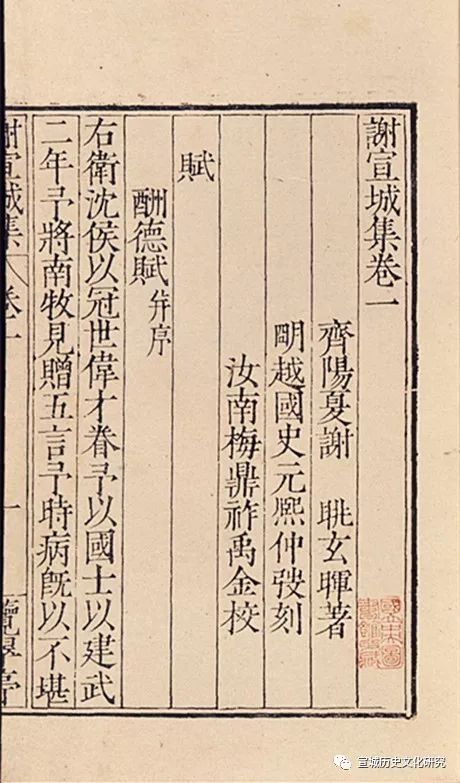 謝宣城集卷一
齊陽夏謝 朓玄暉著
明越國史元熙仲弢刻
汝南梅鼎祚禹金校
賦
酬德賦并序
右衛沈侯以冠世偉才眷予以國士以建武
二年予將南牧見贈五言予時病旣以不堪
謝宣城集 卷一 一
國立中央圖書館收藏
宣城历史文化研究